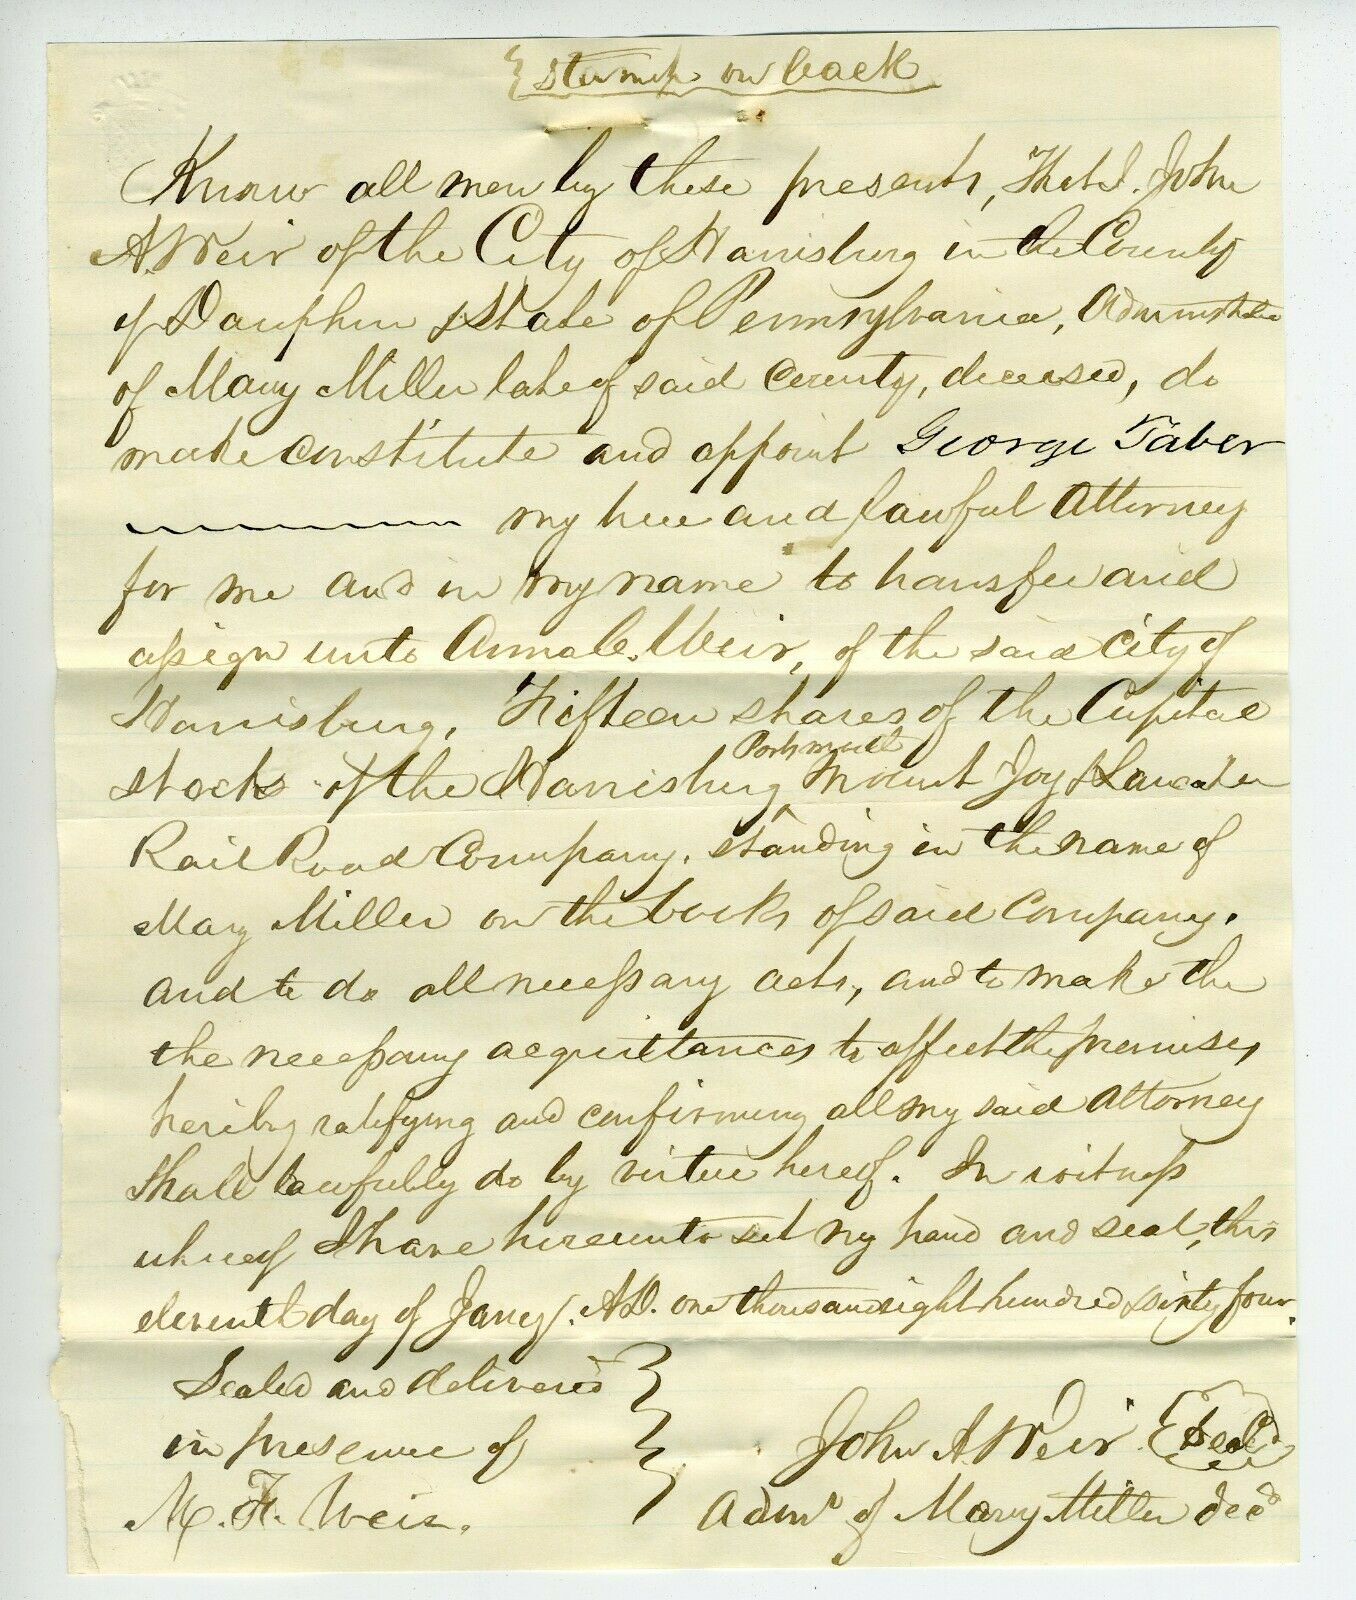 { stamp on back
Know all men by these presents, That I. John
A. Weir of the City of Harrisburg in the County
of Dauphin & State of Pennsylvania,
of Mary Miller late of said County, deceased, do
make constitute and appoint George Taber
my true and lawful Attorney
for me and in my name to transfer and
assign unto Anna C. Weir, of the said City of
Harrisburg, Fifteen shares of the Capital
stock of the Harrisburg ^ Portsmouth Mount Joy & Lancaster
Rail Road Company. standing in the name of
Mary Miller on the books of said Company.
and to do all necessary acts, and to make the
the necessary acquittances to effect the premises,
hereby ratifying and confirming all my said Attorney
shall lawfully do by virtue hereof. In witness
whereof I have hereunto set my hand and seal, this
eleventh day of Jany. A.D. one thousand eight hundred sixty four.
Sealed and delivered }
in presence of }
M. F. Weir.
John A. Weir {Seal}
Admr of Mary Miller decd